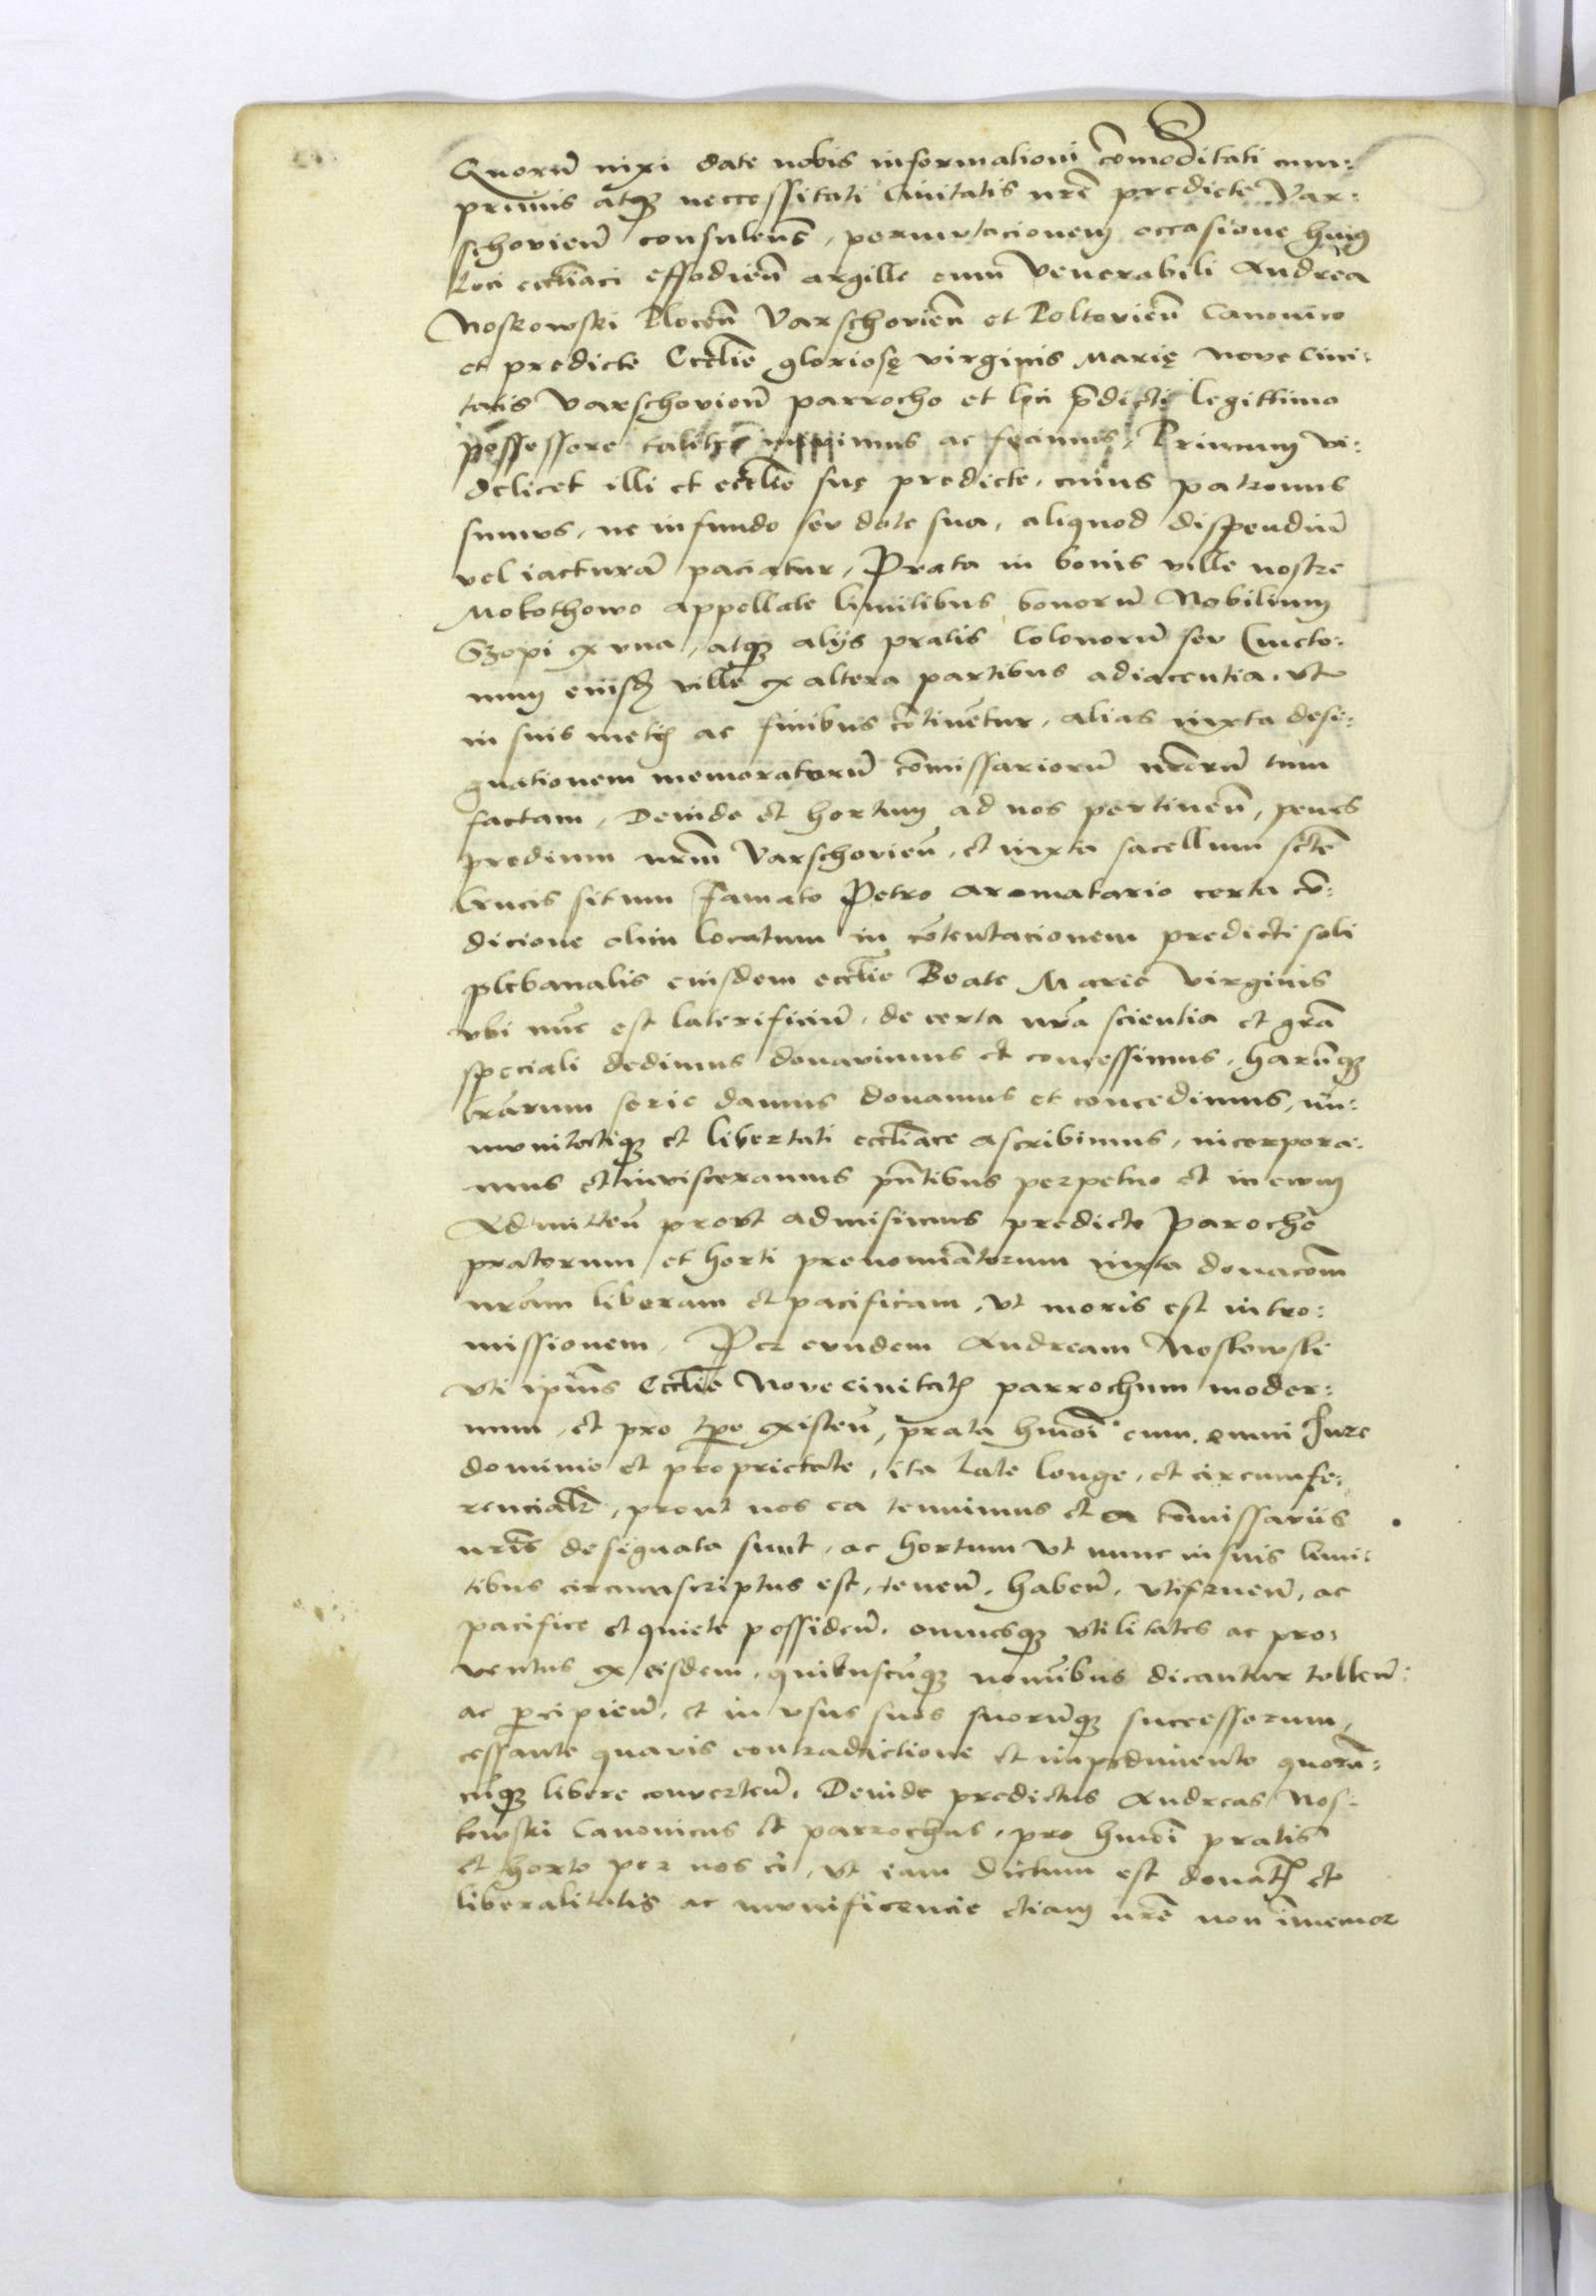 Quorũ nixi date nobis informationi cõmoditati cum:
primis atqȝ neccessitati Ciuitatis nrẽ predicte Var:
schovieñ consuleñs, permutacionem occasione huiꝰ
loci eccl̃iaci effodieñ argille cum Venerabili Andrea
Noskowski Ploceñ Varschovieñ et Poltovieñ Canonico
et predicte Eccl̃ie gloriosę virginis Marię Nove Ciui:
tatis Varschovieñ parrocho et loci p̃dicti legittimo
possessore ac fecimus, Primum vi:
delicet illi et eccl̃ie suę predicte, cuius patronus
sumus, ne in fundo seu dote sua, aliquod dispendiũ
vel iacturã paciatur, Prata in bonis ville nostre
Mokothowo appellate limitibus bonorũ Nobilium
Szopi ex vna, atqȝ alijs pratis Colonorũ seu Cmeto:
num eiusdȩ ville ex altera partibus adiacentia, vt
in suis metꝭ ac finibus cõtinẽtur, alias iuxta desi:
gnationem memoratorũ cõmissariorũ nrõrũ tum
factam, Deinde et hortum ad nos pertineñ, penes
predium nrm̃ Varschovieñ, et iuxta sacellum sctẽ
Crucis situm Famato Petro aromatario certa cõ:
dicione olim locatum in cõtentacionem predicti soli
plebanalis eiusdem eccl̃ie Beate Marie Virginis
vbi nũc est laterificiũ, de certa nrã scientia et grã
speciali dedimus donavimus et concessimus, harũqȝ
lrãrum serie damus donamus et concedimus, im̃:
munitatiqȝ et libertati eccl̃iace ascribimus, incorpora:
mus et inuisceramus pñtibus perpetuo et in ewum
Admitteñ prout admisimus predicto Parocho
pratorum et horti prenomiãtorum iuxta donacõm
nrãm liberam et pacificam, vt moris est intro:
missionem, Per eundem Andream Noskowski
vti ipiũs Eccl̃ie Nove ciuitatꝭ parrochum moder:
num, et pro tp̃e existeñ, prata hmõi cum omni Jure
dominio et proprietate, ita late longe, et circumfe:
rencialr̃, prout nos ea tenuimus et a cõmissariis
nrĩs designata sunt, ac hortum vt nunc in suis limi:
tibus circumscriptus est, teneñ, habeñ, vtifrueñ, ac
pacifice et quiete possideñ, omnesqȝ vtilitates ac pro:
ventus ex eisdem, quibuscũqȝ nomĩbus dicantur tolleñ:
ac p̱cipieñ, et in vsus suos suorũqȝ successorum,
cessante quavis contradictione et impedimento quorũ:
cũqȝ libere converteñ, Deinde predictus Andreas Nos:
kowski Canonicus et parrochus, pro hmõi pratis
et horto per nos ei, vt iam dictum est donatꝭ et
liberalitatis ac munificencie etiam nrẽ non ĩmemor